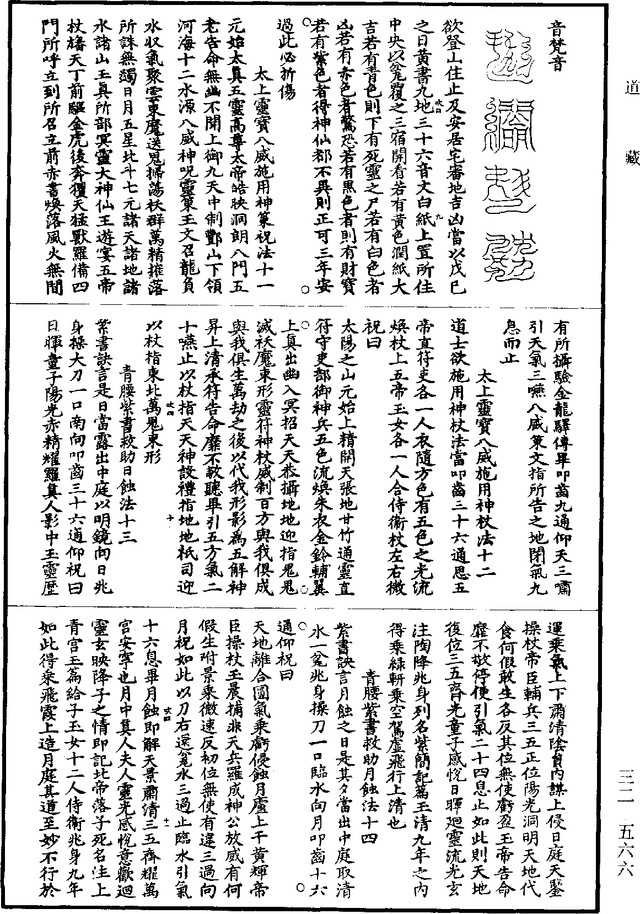 道藏
三二—五六六
音梵音
欲登山住止及安居宅審地吉凶當以戊己
之日黃書九地三十六音文白紙上置所住
中央以瓮覆之三宿開看若有黃色潤紙大
吉若有青色則下有死靈之尸若有白色者
凶若有赤色者驚恐若有黑色者則有財寶
若有紫色者得神仙都不異則正可三年安
過此必折傷
太上靈寶八威施用神策祝法十一
元始太真五靈高尊太帝皓映洞朗八門五
老告命無幽不開上御九天中制酆山下領
河海十二水源八威神呪靈策玉文召龍負
水收氣聚雲束魔送鬼掃蕩妖群萬精摧落
所誅無蠲日月五星北斗七元諸天諸地諸
水諸山王真所部冥靈大神仙王遊宴五帝
杖旛天丁前驅金虎後奔玃天猛獸羅備四
門所呼立到所召立前赤書煥落風火無間
有所攝驗金龍驛傳畢叩齒九通仰天三嘯
引天氣三嚥八威策文指所告之地閉氣九
息而止
太上靈寶八威施用神杖法十二
道士欲施用神杖法當叩齒三十六通思五
帝直符吏各一人衣隨方色有五色之光流
煥杖上五帝玉女各一人合侍衛杖左右微
祝曰
太陽之山元始上精開天張地甘竹通靈直
符守吏部御神兵五色流煥朱衣金鈴輔翼
上真出幽入冥招天天恭攝地地迎指鬼鬼
滅祅魔束形靈符神杖威制百方與我俱成
與我俱生萬劫之後以代我形影為五解神
昇上清承符告命靡不敬聽畢引五方氣二
十嚥止以杖指天天神設禮指地地祇司迎
以杖指東北萬鬼束形
青腰紫書救助日蝕法十三
紫書訣言是日當露出中庭以明鏡向日兆
身操大刀一口南向叩齒三十六通仰祝曰
日暉童子陽光赤精耀羅真人影中王靈歷
運乘氣上下肅清陰賁內謀上侵日庭天鑒
操杖帝臣輔兵三五正位陽光洞明天地代
食何假敢生各反其位無使虧盈玉帝告命
靡不敬停便引氣二十四息止如此則天地
復位三五齊光童子感悅日暉迴靈流光玄
注陶降兆身列名紫簡記篇玉清九年之內
得乘綠軿乘空駕虛飛行上清也
青腰紫書救助月蝕法十四
紫書訣言月蝕之日是其夕當出中庭取清
水一瓮兆身操刀一口臨水向月叩齒十六
通仰祝曰
天地離合圓氣乘虧侵蝕月廬上干黃輝帝
臣操杖王晨捕非天兵羅成神公放威有何
假生咐景乘微速反初位無使有違三過向
月祝如此以刀右還瓮水三過止臨水引氣
十六息畢月蝕即解天景肅清三五齊耀萬
宮安寧也月中真人夫人靈光感悅意歡迴
靈玄映降子之情即記北帝落子死名注上
青宮玉篇給子玉女十二人侍衛兆身九年
如此得乘飛霞上造月庭其道至妙不行於